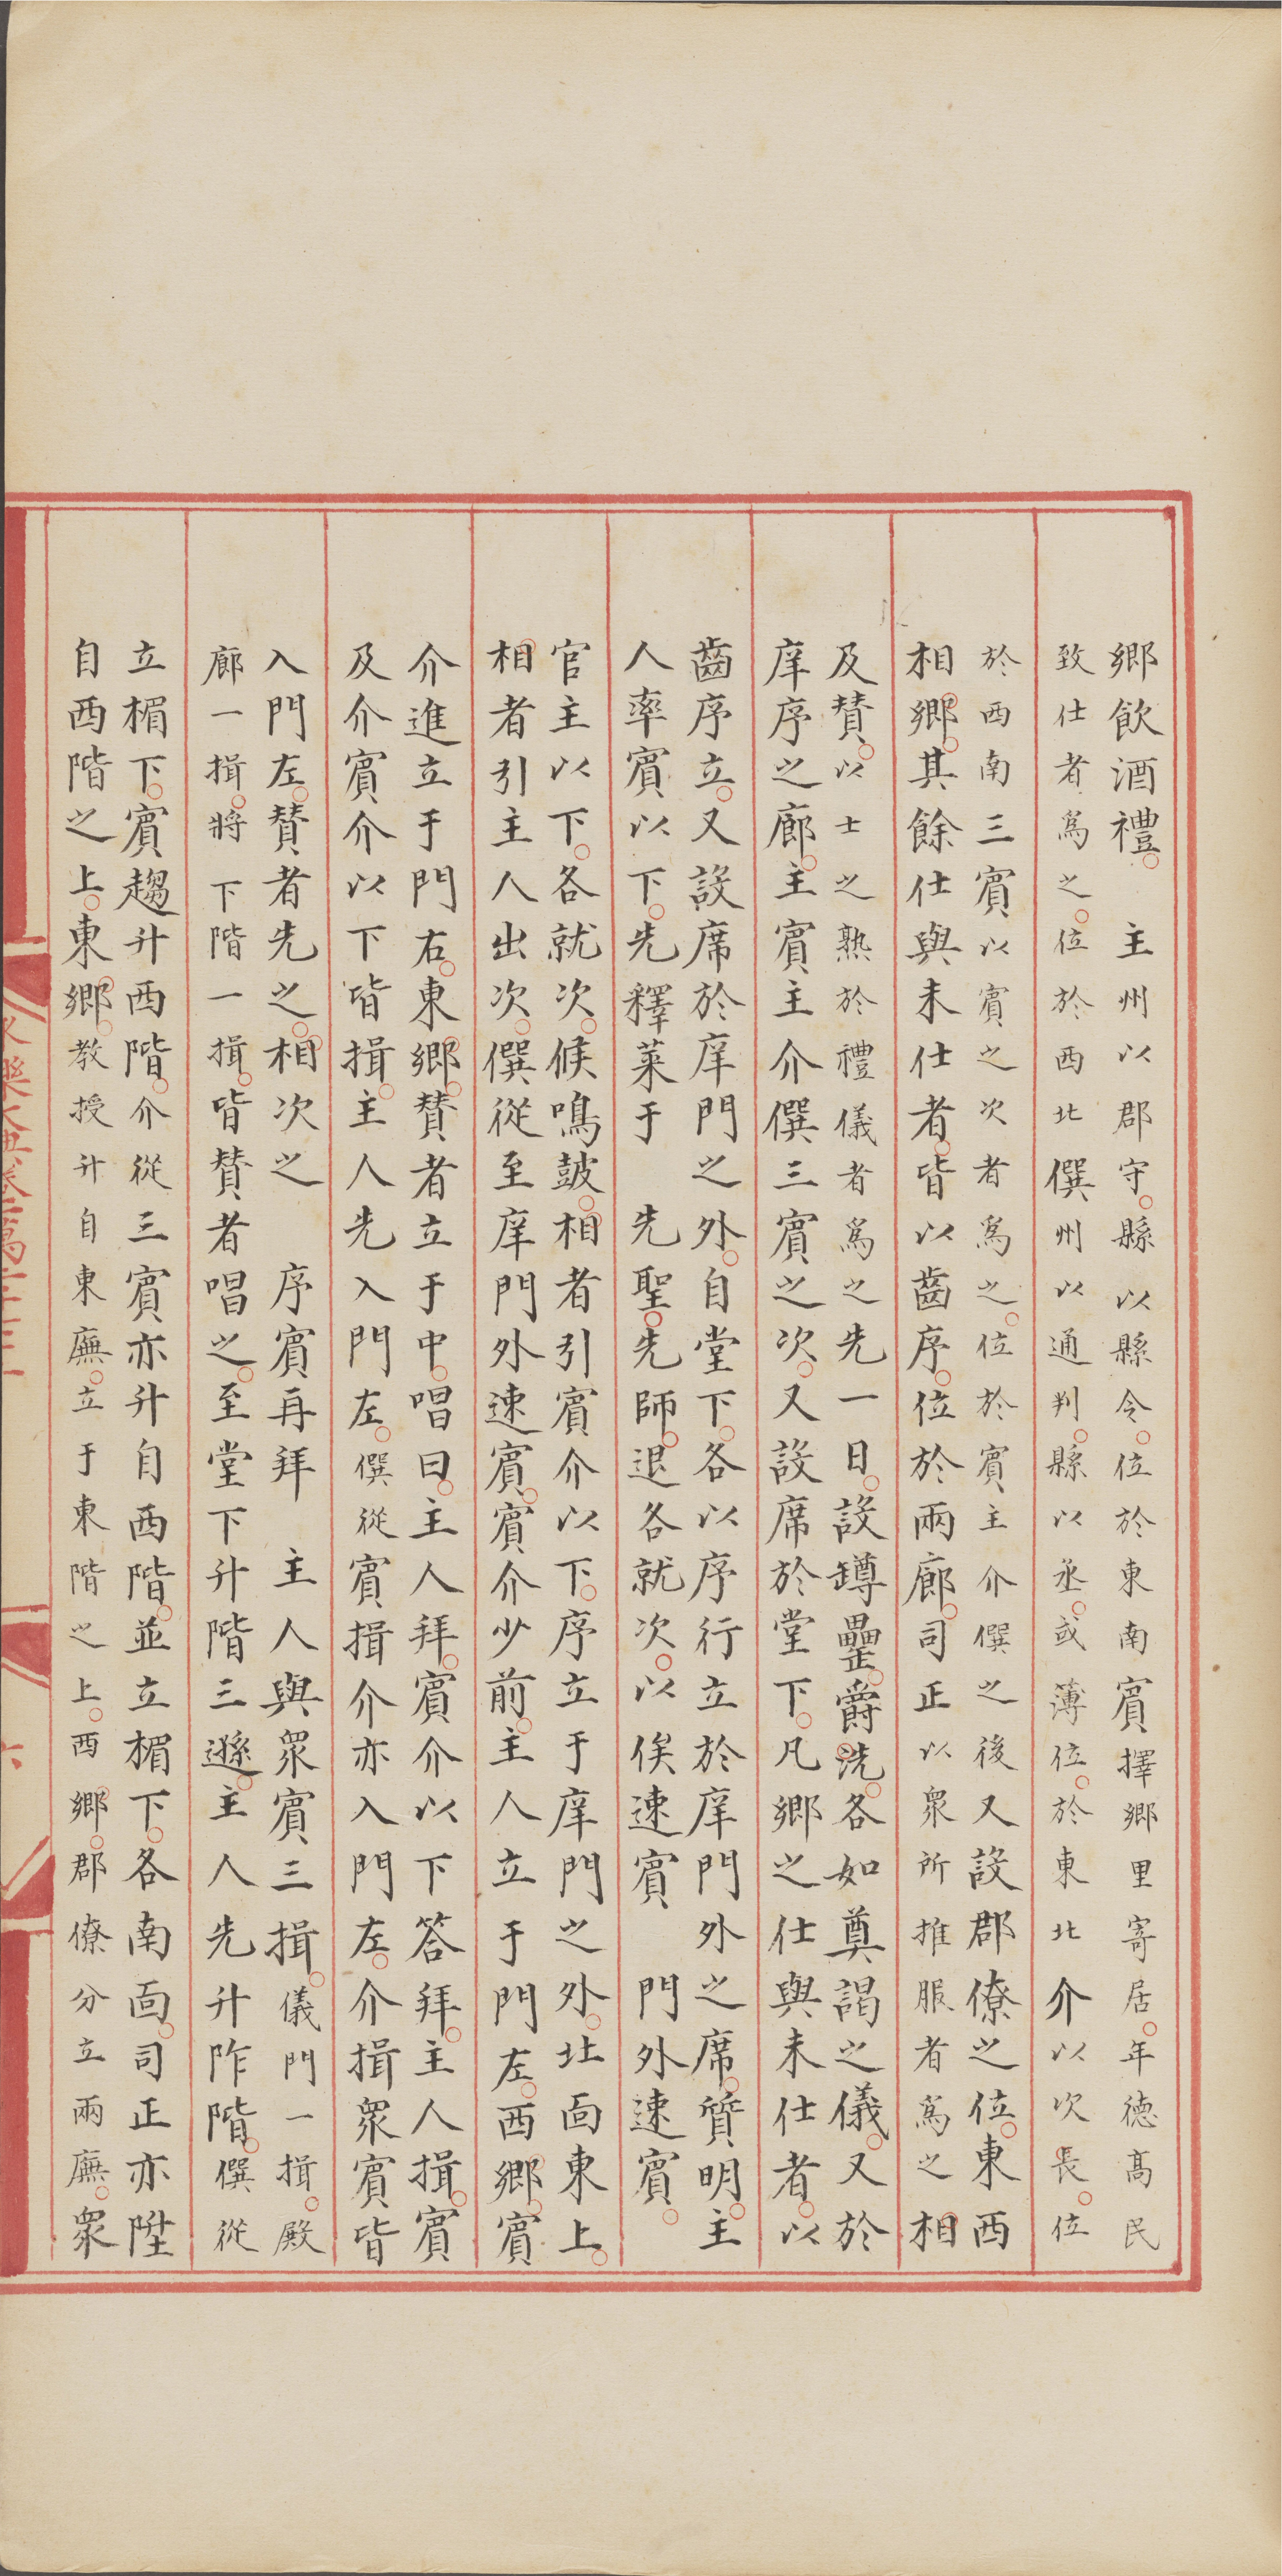 鄉飲酒禮。 主州以郡守。縣以縣令。位於東南賓擇鄉里寄居。年德高民
致仕者爲之。位於西北僎州以通判。縣以丞。或薄位。於東北介以次長。位
於西南三賓以賓之次者爲之。位於賓主介僎之後又設郡僚之位。東西
相鄉。其餘仕與未仕者。皆以齒序。位於兩廊。司正以衆所推服者爲之 相
及贊。以士之熟於禮儀者爲之先一日。設罇罍。爵洗。各如奠謁之儀。又於
庠序之廊。主賓主介僎三賓之次。又設席於堂下。凡鄉之仕與未仕者。以
齒序立。又設席於庠門之外。自堂下。各以序行立於庠門外之席。質明。主
人率賓以下。先釋菜于 先聖。先師。退各就次。以俟速賓 門外速賓。
官主以下。各就次。候鳴皷。相者引賓介以下。序立于庠門之外。北面東上。
相者引主人出次。僎從至庠門外速賓。賓介少前。主人立于門左。西鄉。賓
介進立于門右。東鄉。贊者立于中。唱曰。主人拜。賓介以下答拜。主人揖。賓
及介賓介以下皆揖。主人先入門左。僎從賓揖介亦入門左。介揖衆賓皆
入門左。贊者先之。相次之 序賓再拜 主人與衆賓三揖。儀門一揖。殿
廊一揖。將下階一揖。皆贊者唱之。至堂下升階三遜。主人先升阼階。僎從
立楣下。賓趨升西階。介從三賓亦升自西階。並立楣下。各南面。司正亦陞
自西階之上。東鄉。教授升自東廡。立于東階之上。西鄉。郡僚分立兩廡。衆
永樂大典卷二萬
六